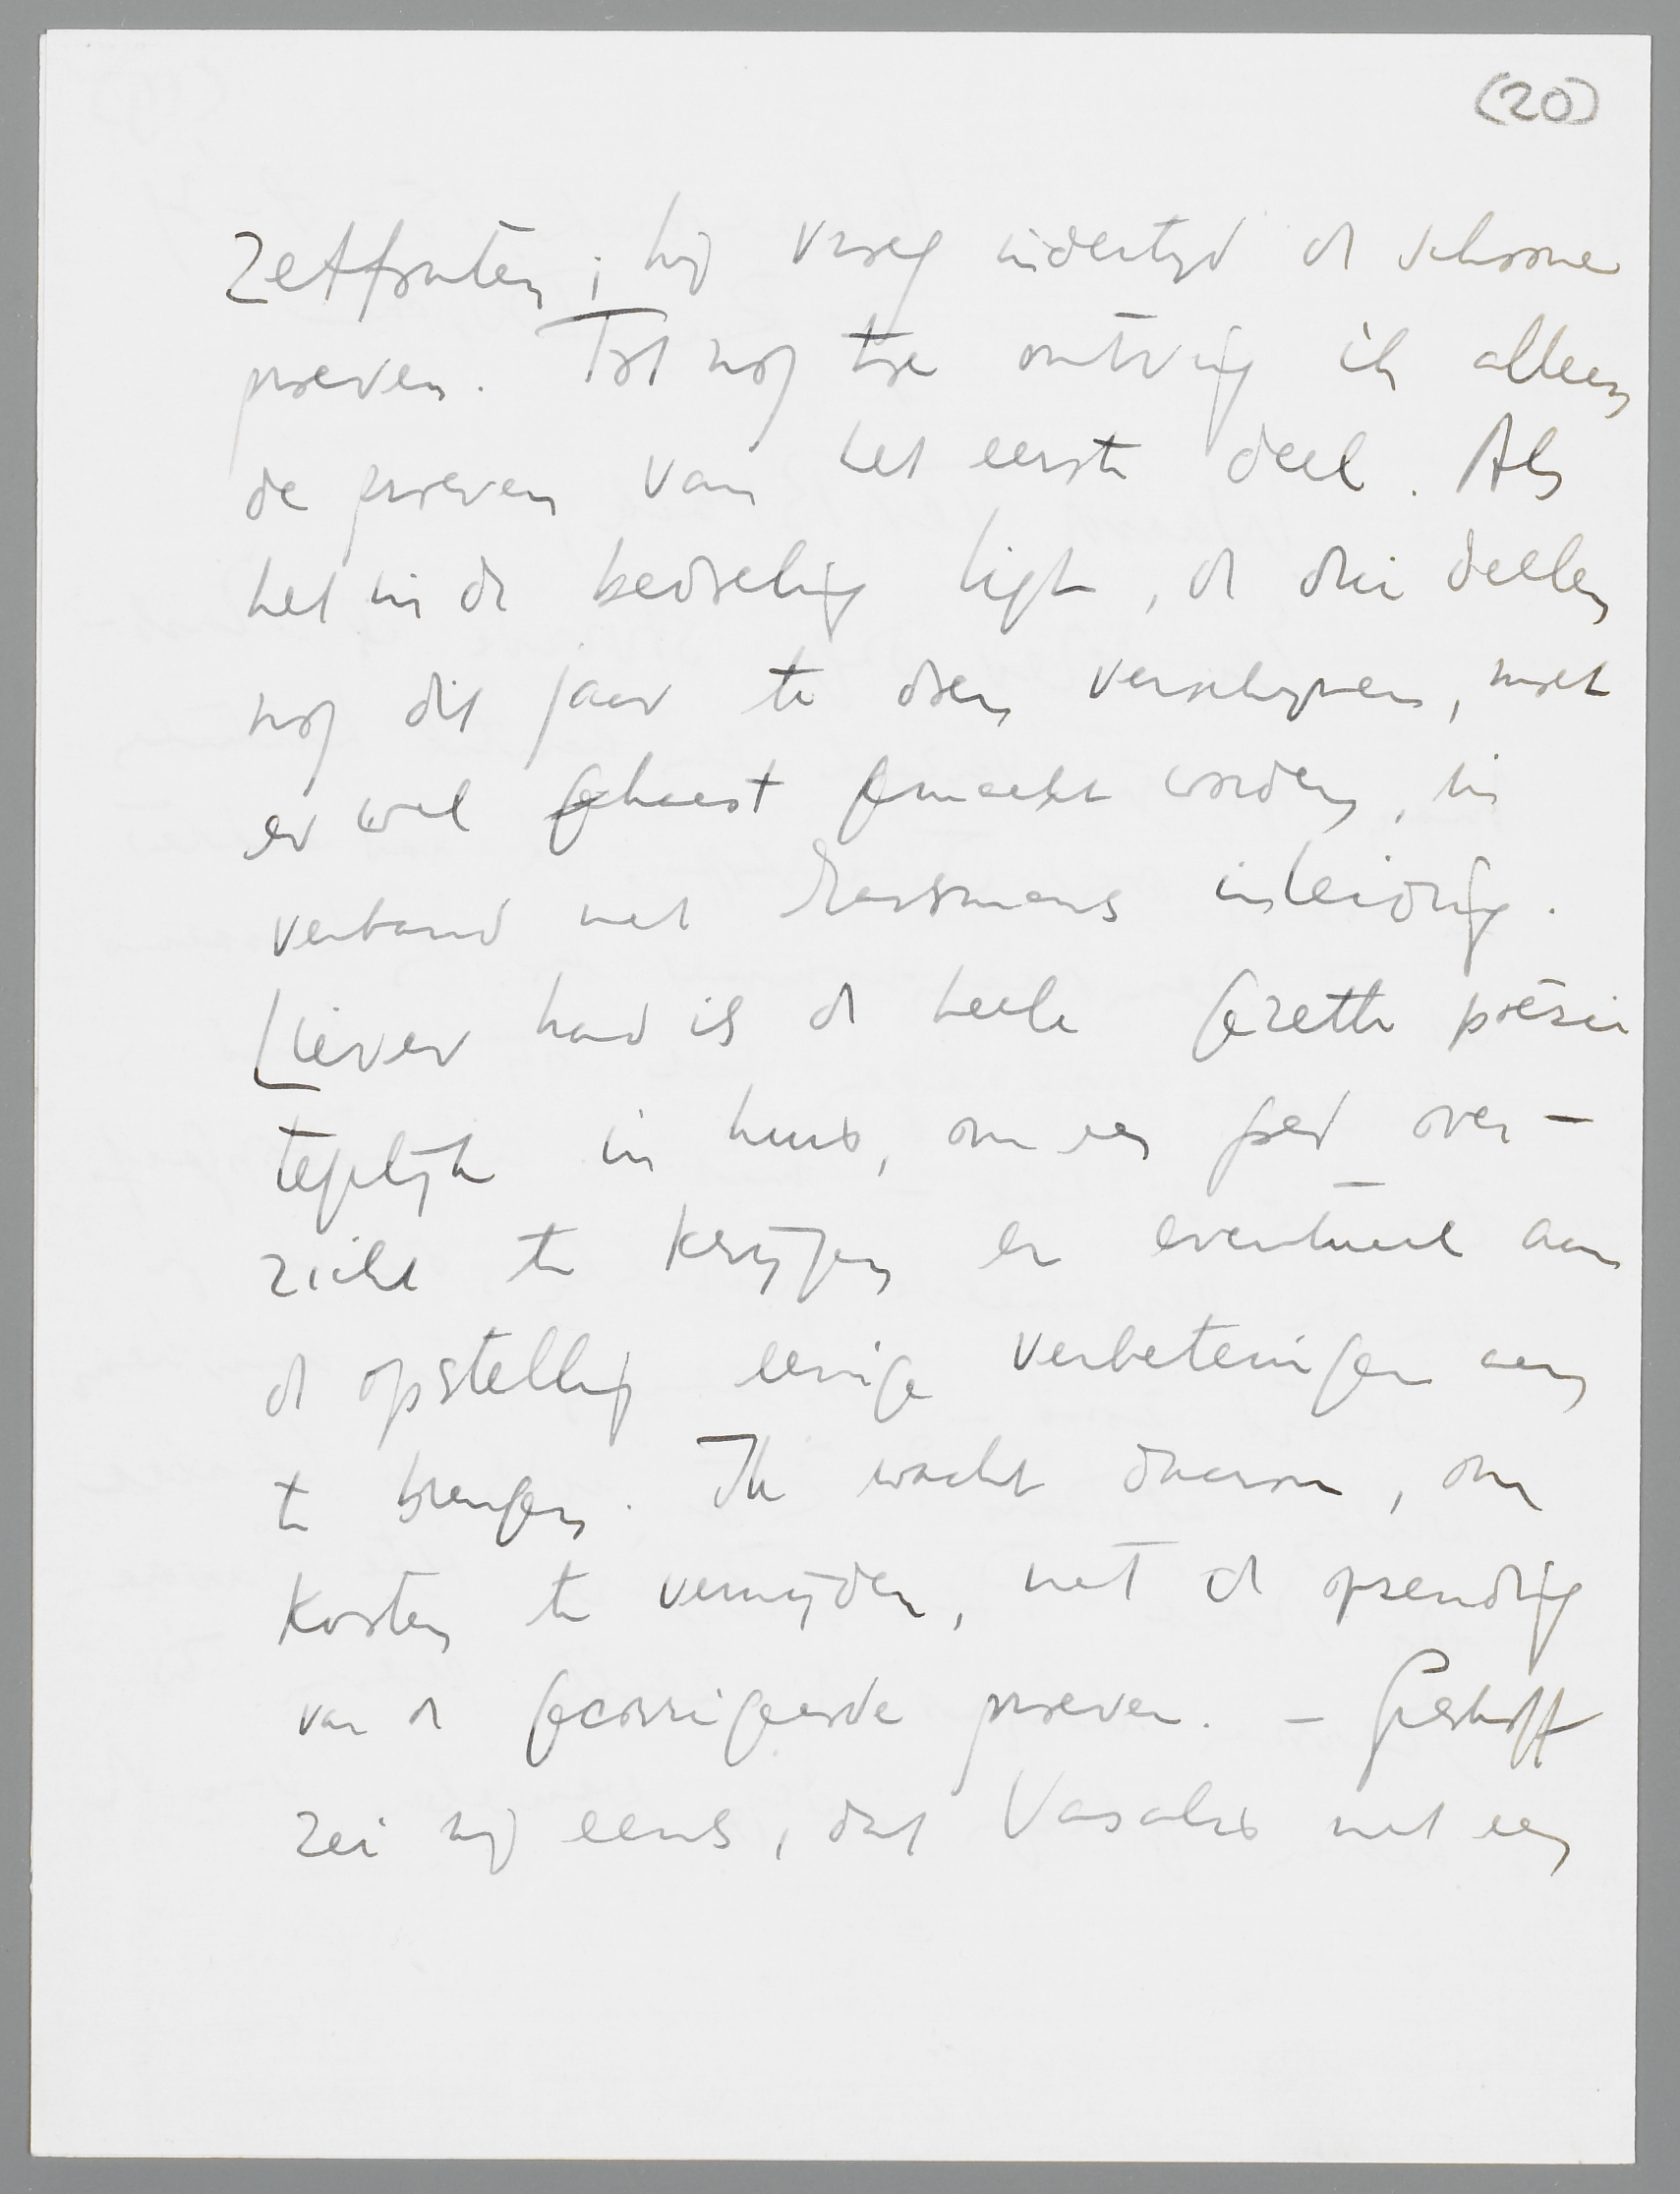 (20)
zetfouten; hij vroeg indertijd de schoone
proeven. Tot nog toe ontving ik alleen
de proeven van het eerste deel. Als
het in de bedoeling ligt, de drie deelen
nog dit jaar te doen verschijnen, moet
er wel gehaast gemaakt worden, in
verband met inleiding.
Liever had ik de heele gezette poëzie
tegelijk in huis, om een goed over-
zicht te krijgen en eventueel aan
de opstelling eenige verbeteringen aan
te brengen. Ik wacht daarom, om
kosten te vermijden, met de opzending
van de gecorrigeerde proeven. – Greshoff
zei mij eens, dat Vasalis met een